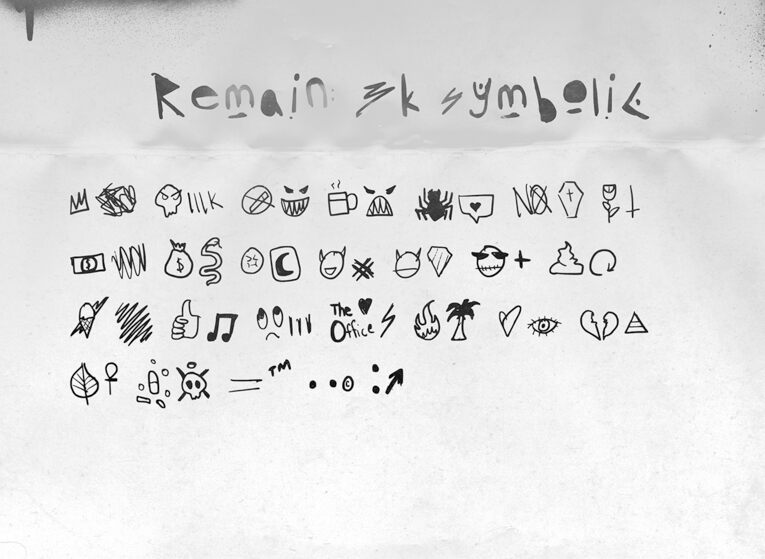 Remain 3k symbolic
NO
$ $
The Office
TM
©